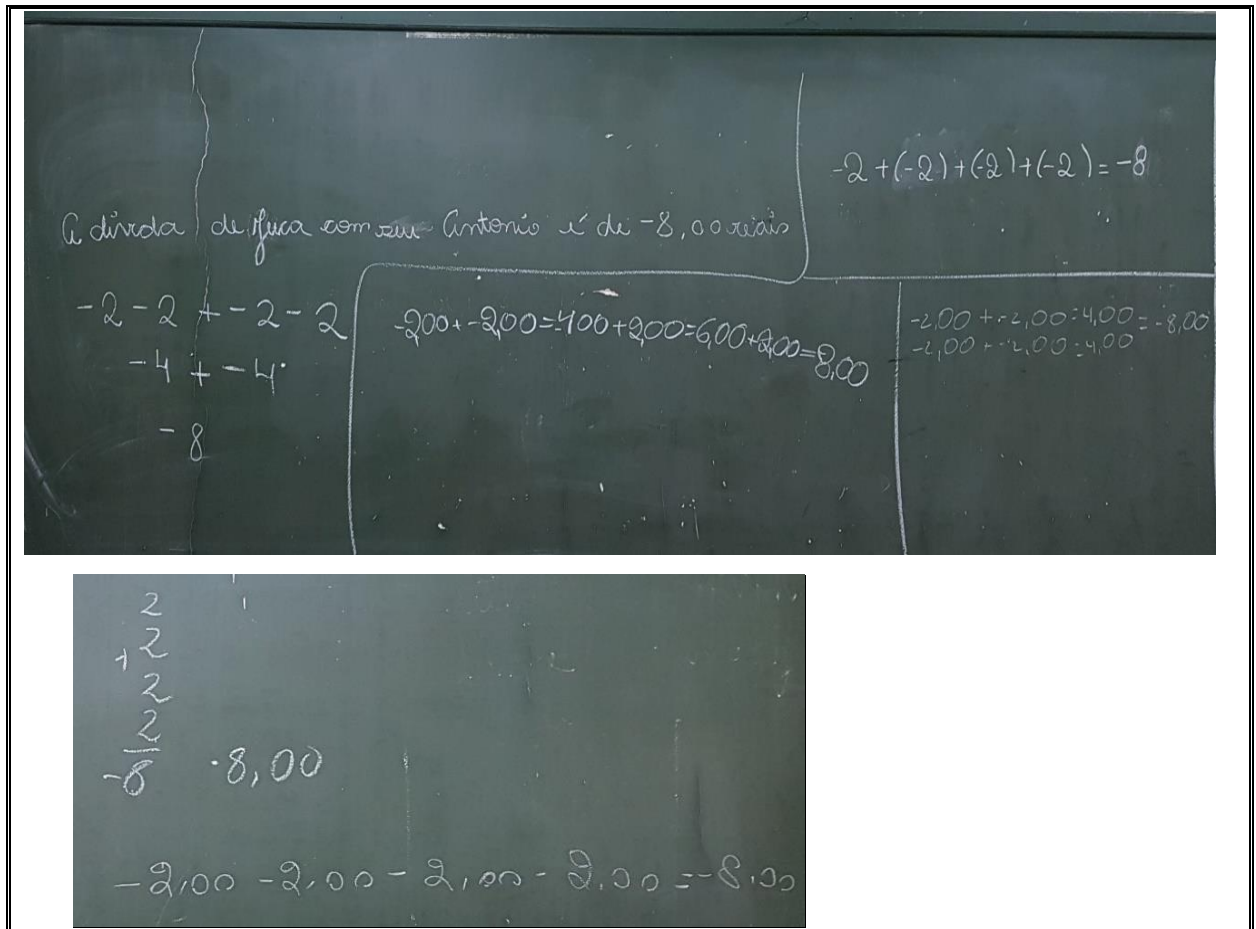 -2 +(-2)+(-2)+(-2)= -8
A dívida de Juca com seu Antonio é de -8,00 reais
-2 -2 + -2 -2
-4 + -4
-8
-2,00+-2,00=-4,00+2,00=6,00+2,00=8,00
-2,00 +-2,00=4,00 = -8,00
-2,00 +-2,00=4,00
2
+2
2
2
-8 -8,00
-2,00 -2,00 - 2,00 - 2,00 =-8,00